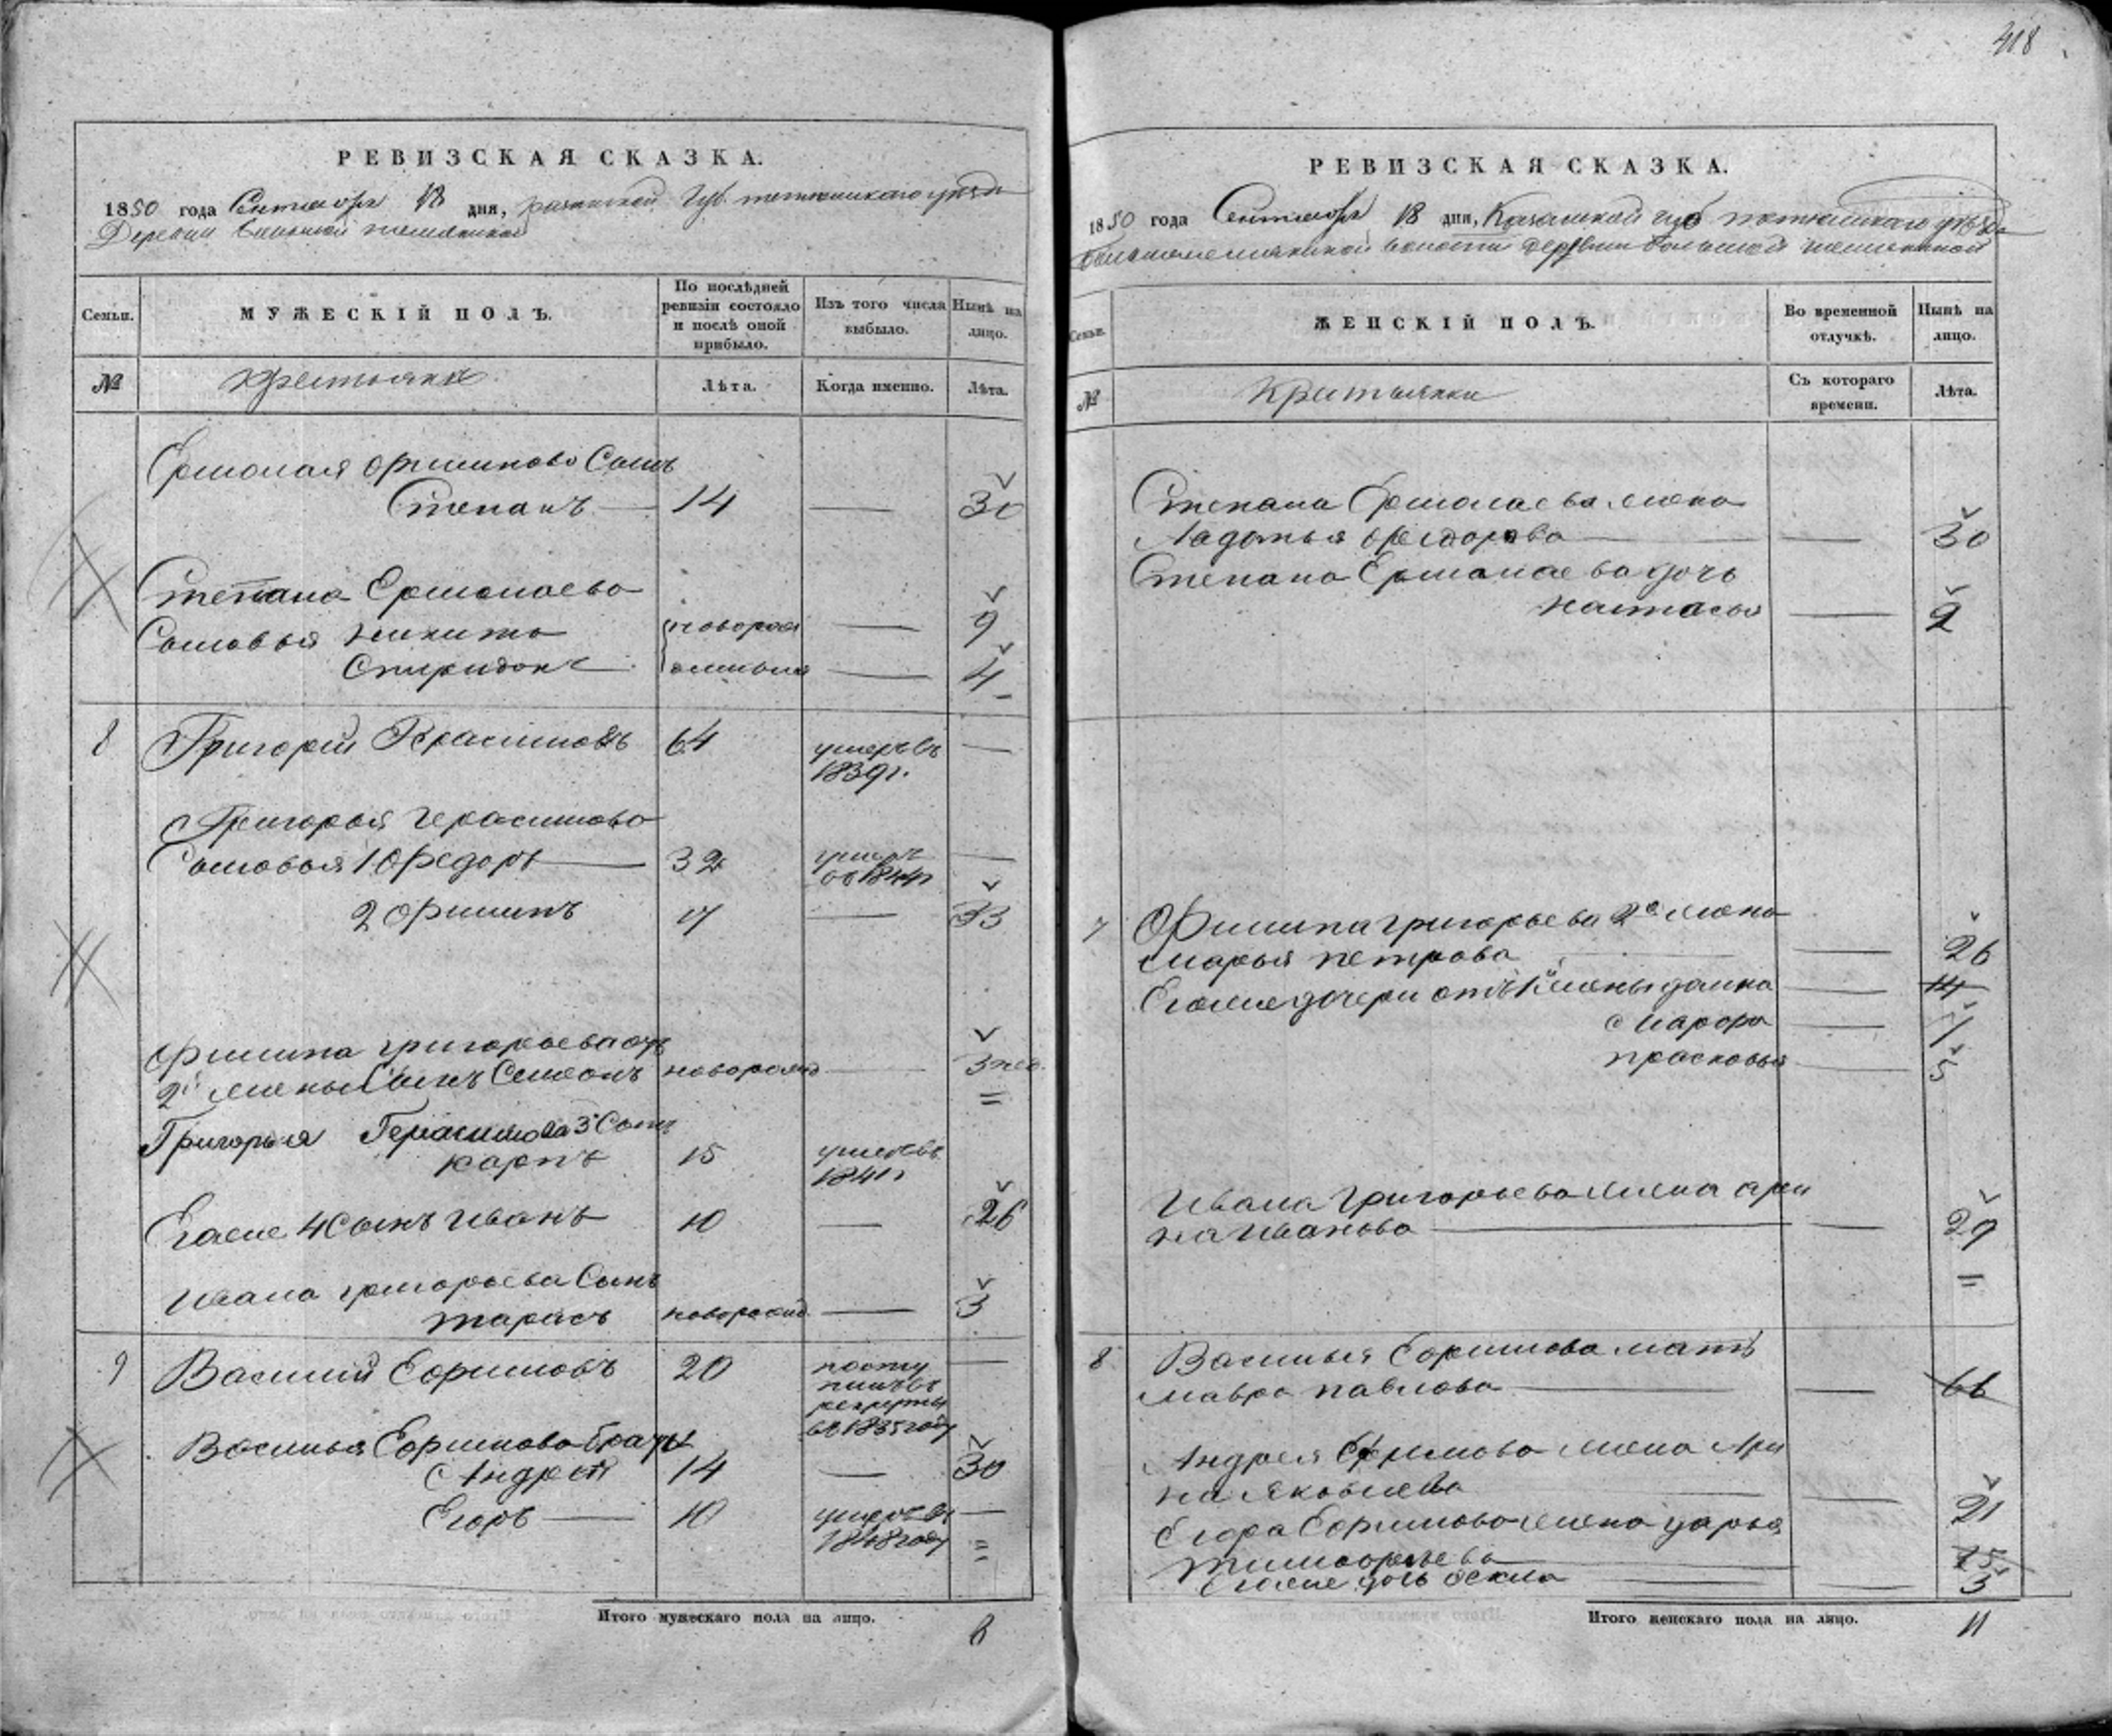 418
РЕВИЗСКАЯ СКАЗКА.
1850 года Сентября 18 дня, Казанской Губ. тетюшскаго уезда
Деревни
Семьи.
МУЖЕСКІЙ ПОЛЪ.
По послѣдней ревизіи состояло и послѣ оной прибыло.
Изъ того числа выбыло.
Нынѣ на лицо.
№
крестьяне
Лѣта.
Когда именно.
Лѣта.
Ермолая Филипова Сынъ
Степанъ — 14 — 30
Степана Ермолаева
Сыновья Никита новорож — 9
Спиридонъ денныя — 4
8 Григорій Герасимовъ 64 умеръ въ —
1839 г.
Григорья Герасимова
Сыновья 1 Федоръ — 32 умеръ —
въ 1844
2 Филипъ 17 — 33
Филипа григорьева отъ
2й жены Сынъ Семенъ новорожд. — 3 нед.
Григорья Герасимова 3 Сынъ
карпъ 15 умеръ въ
1841
Егоже 4 Сынъ Иванъ 10 — 26
Ивана григорьева Сынъ
тарасъ новорожд. — 3
9 Василий Ефимовъ 20 посту —
пилъ въ
рекруты
въ 1835 году
Василья Ефимова братья
Андрей 14 — 30
Егоръ — 10 умеръ въ —
1848 году
Итого мужескаго пола на лицо. 8
РЕВИЗСКАЯ СКАЗКА.
1850 года Сентября 18 дня, Казанской губ тетюшскаго уѣзда
волости деревни большой
Семьи.
ЖЕНСКІЙ ПОЛЪ.
Во временной отлучкѣ.
Нынѣ на лицо.
№
Крестьянки
Съ котораго времени.
Лѣта.
Степана Ермолаева жена
Авдотья Федорова — 30
Степана Ермолаева дочь
настасья — 2
7 Филипа григорьева 2я жена
Марья петрова — 26
Егоже дочери отъ 1й жены домна — 14
Марфа — 7
прасковья — 5
Ивана Григорьева жена ари
на Иванова — 29
8 Василья Ефимова мать
мавра павлова — 66
Андрея Ефимова жена Ари
на яковлева — 21
Егора Ефимова жена дарья
тимофеева 25
Егоже дочь фекла — 3
Итого женскаго пола на лицо. 11